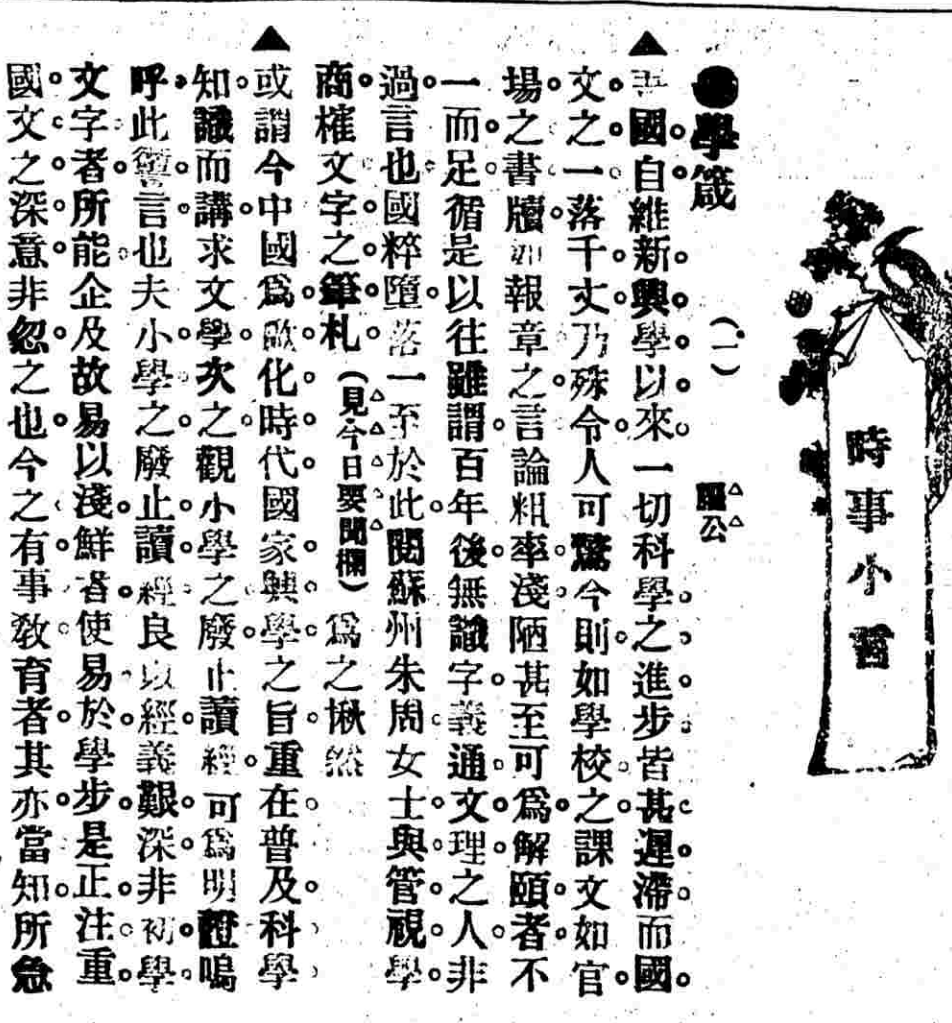 時事小言
●學箴 (一)
▲吾國自維新興學以來一切科學之進步皆甚遲滯而國
文之一落千丈乃殊令人可驚今則如學校之課文如官
場之書牘如報章之言論粗率淺陋甚至可爲解頤者不
一而足循是以往雖謂百年後無識字義通文理之人非
過言也國粹墮落一至於此閱蘇州朱周女士與管視學
商榷文字之筆札(見今日要聞欄)爲之愀然
▲或謂今中國爲歐化時代國家興學之旨重在普及科學
知識而講求文學次之觀小學之廢止讀經可爲明證嗚
呼此讏言也夫小學之廢止讀經良以經義艱深非初學
文字者所能企及故易以淺鮮者使易於學步是正注重
國文之深意非忽之也今之有事敎育者其亦當知所急